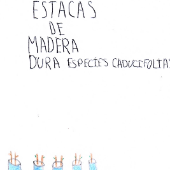 ESTACAS
DE
MADERA
DURA ESPECIES CADUCIFOLTA